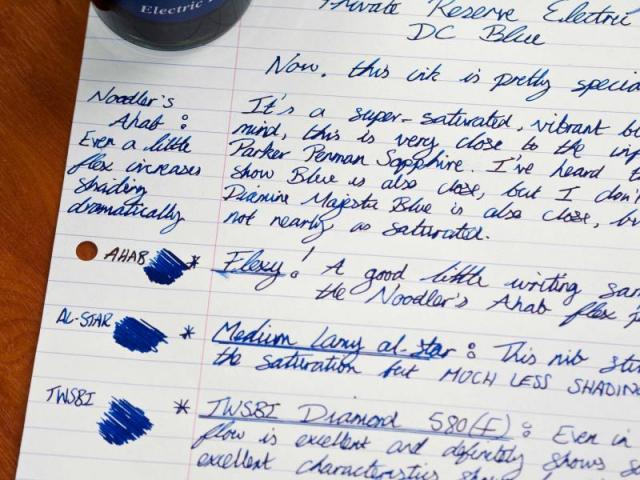 Electric
Private Reserve Electric
DC Blue
Now, this ink is pretty specia
Noodler's
Ahab :
Even a little
flex increases
shading
dramatically
It's a super-saturated, vibrant b
mind, this is very close to the
Parker Penman Sapphire. I've heard t
show Blue is also close, but I don'
Diamine Majestic Blue is also close, bu
not nearly as saturated.
AHAB * Flexy! : A good little writing sam
the Noodler's Ahab flex
AL-STAR * Medium Lamy al-star : This nib sti
the saturation but MUCH LESS SHADIN
TWSBI * TWSBI Diamond 580(F) : Even in
flow is excellent and definitely shows s
excellent characteristics